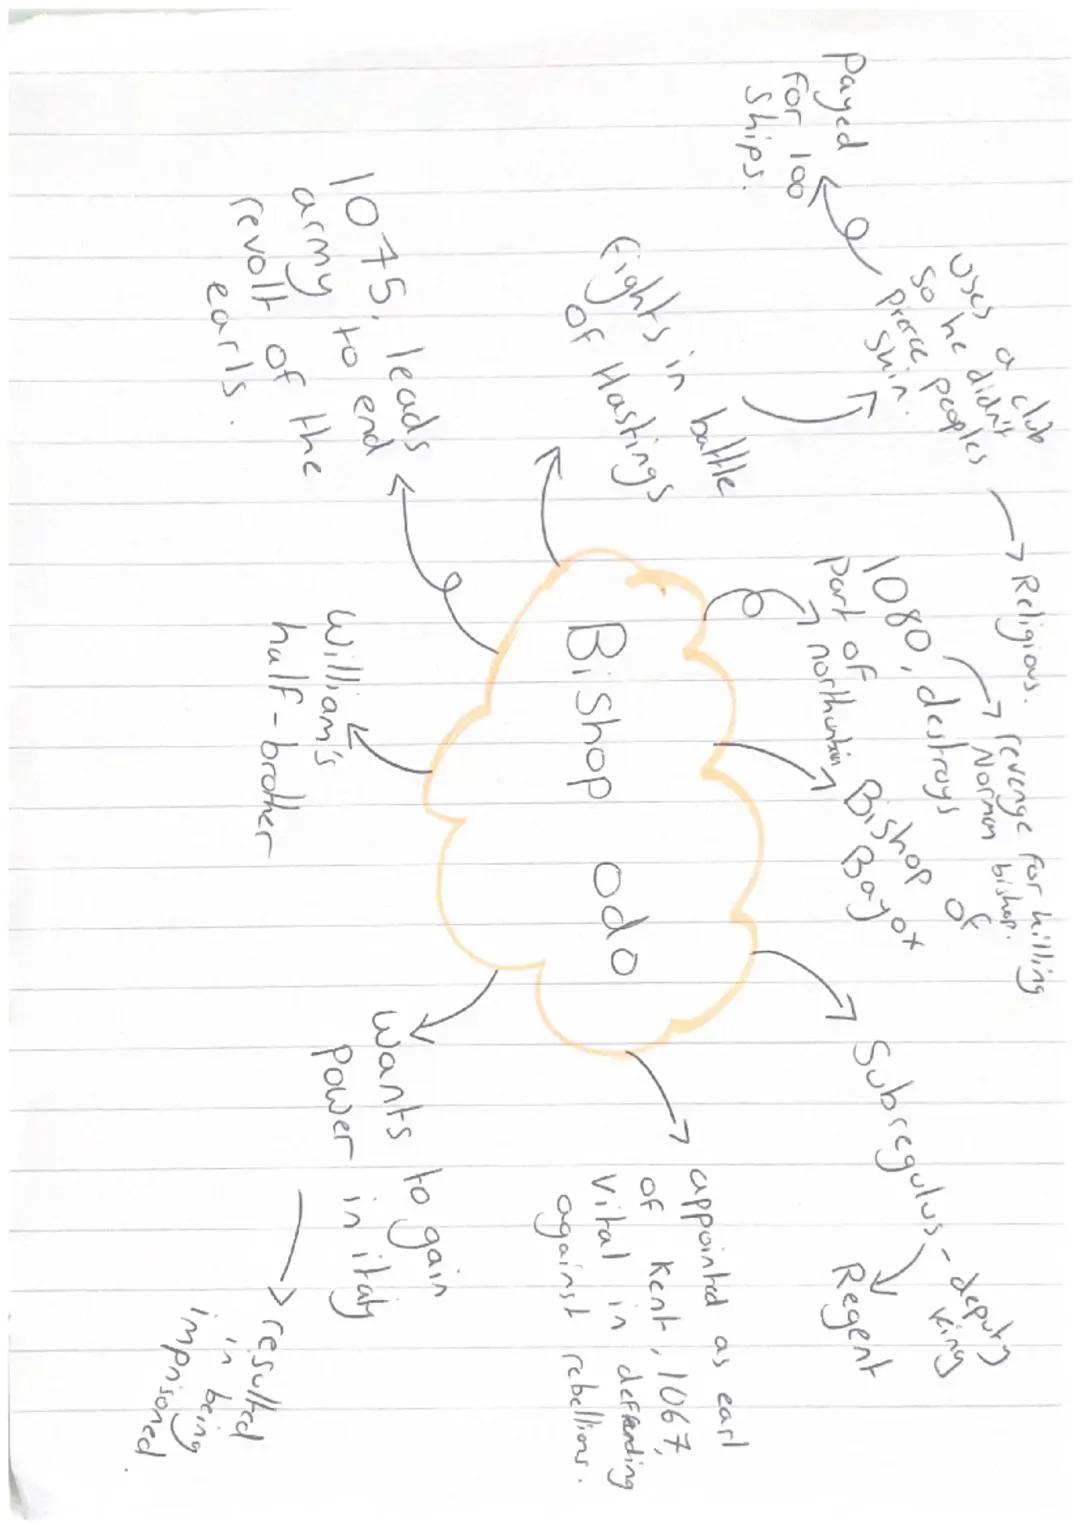 Bishop odo
Payed
for 100
ships.
uses a club
so he didn't
pierce peoples
skin.
→ Religious.
fights in battle
of Hastings
1075, leads
army to end
revolt of the
earls.
William's
half-brother
1080, destroys
part of
→ revenge for killing
Norman bishop.
Bishop of
Bayox
Subregulus - deputy
king
Regent
appointed as earl
of Kent, 1067,
vital in deffending
against rebellions.
Wants to gain
power in italy
resulted
in being
imprisoned.